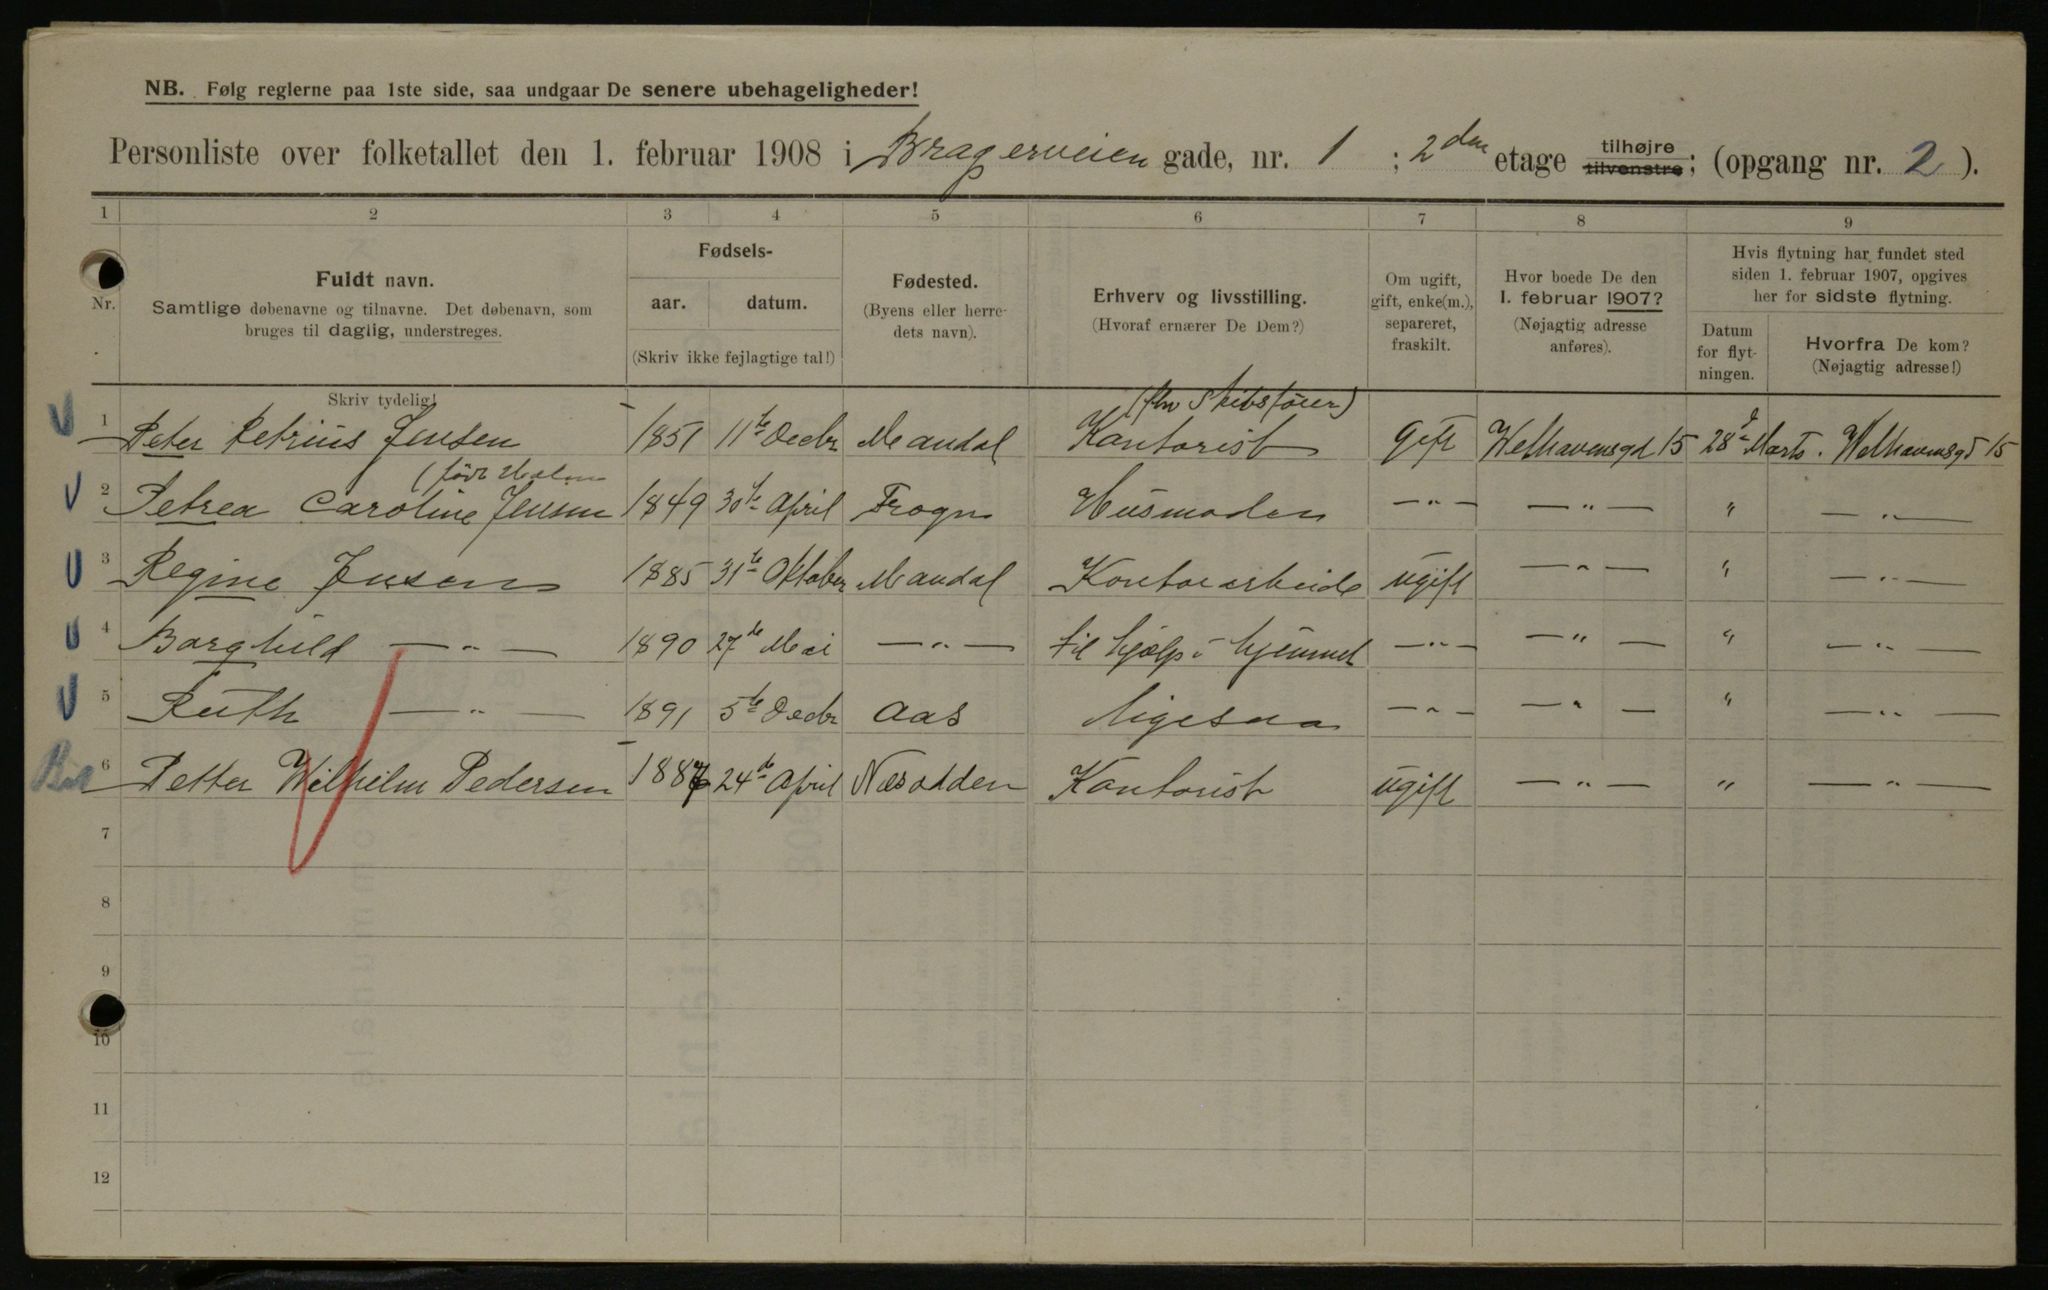 NB. Følg reglerne paa 1ste side, saa undgaar De senere ubehageligheder!
Personliste over folketallet den 1. februar 1908 i Bragerveien gade, nr. 1 ; 2den etage tilhøjre tilvenstre; (opgang nr. 2 ).
1 2 3 4 5 6 7 8 9
Nr.
Fuldt navn.
Samtlige døbenavne og tilnavne. Det døbenavn, som
bruges til daglig, understreges.
Fødsels-
aar. datum.
(Skriv ikke fejlagtige tal!)
Fødested.
(Byens eller herre-
dets navn).
Erhverv og livsstilling.
(Hvoraf ernærer De Dem?)
Om ugift,
gift, enke(m.),
separeret,
fraskilt.
Hvor boede De den
1. februar 1907?
(Nøjagtig adresse
anføres).
Hvis flytning har fundet sted
siden 1. februar 1907, opgives
her for sidste flytning.
Datum
for flyt-
ningen.
Hvorfra De kom?
(Nøjagtig adresse!)
Skriv tydelig!
(fhv Skibsfører)
1 Peter Petrius Jensen 1851 11te Decbr Mandal Kontorist gift Welhavensgd 15 28de Marts. Welhavensgd 15
(født Holm
2 Petrea Caroline Jensen 1849 30te April Frogn Husmoder —"— —"— " —"—
3 Regine Jensen 1885 31te Oktober Mandal Kontorarbeide ugift —"— " —"—
4 Borghild —"— 1890 27de Mai —"— til hjælp i hjemmet —"— —"— " —"—
5 Ruth —"— 1891 5te Decbr Aas Ligesaa —"— —"— " —"—
6 Petter Wilhelm Pedersen 1886 24de April Næsodden Kontorist ugift —"— " —"—
7
8
9
10
11
12